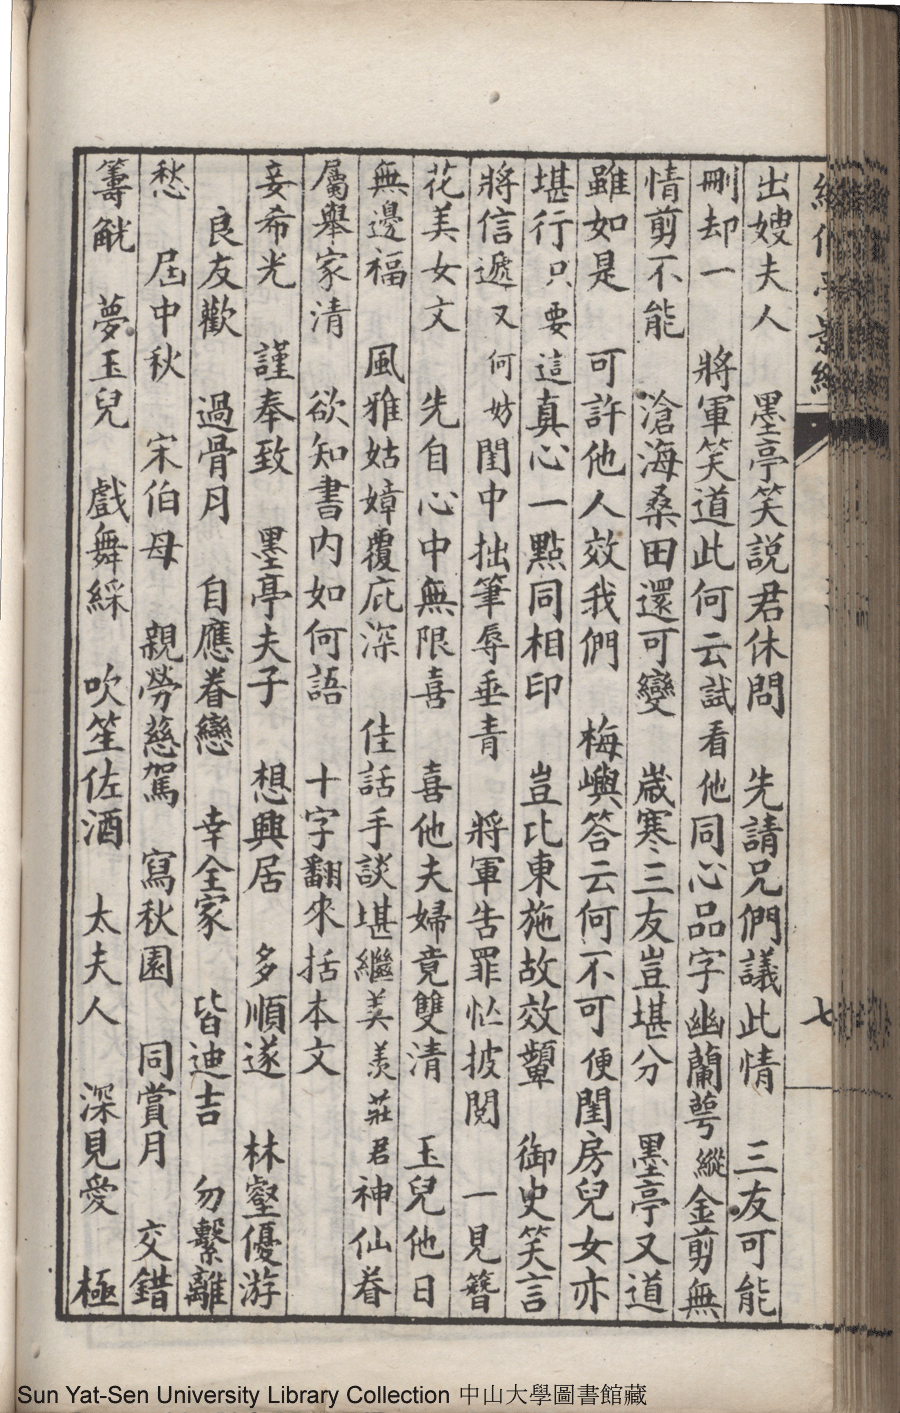 七
出嫂夫人　墨亭笑說君休問　先請兄們議此情　三友可能
刪却一　將軍笑道此何云試看他同心品字幽蘭萼縱金剪無
情剪不能　滄海桑田還可變　歲寒三友豈堪分　墨亭又道
雖如是　可許他人效我們　梅嶼答云何不可便閨房兒女亦
堪行只要這真心一點同相印　豈比東施故效顰　御史笑言
將信遞又何妨閨中拙筆辱垂青　將軍告罪忙披閱　一見簪
花美女文　先自心中無限喜　喜他夫婦竟雙清　玉兒他日
無邊福　風雅姑嫜覆庇深　佳話手談堪繼美羡莊君神仙眷
屬舉家清　欲知書内如何語　十字翻來括本文
妾希光　謹奉致　墨亭夫子　想興居　多順遂　林壑優游
良友歡　過骨月　自應眷戀　幸全家　皆迪吉　勿繫離
愁　屆中秋　宋伯母　親勞慈駕　寫秋園　同賞月　交錯
籌觥　夢玉兒　戲舞綵　吹笙佐酒　太夫人　深見愛　極
Sun Yat-Sen University Library Collection 中山大學圖書館藏